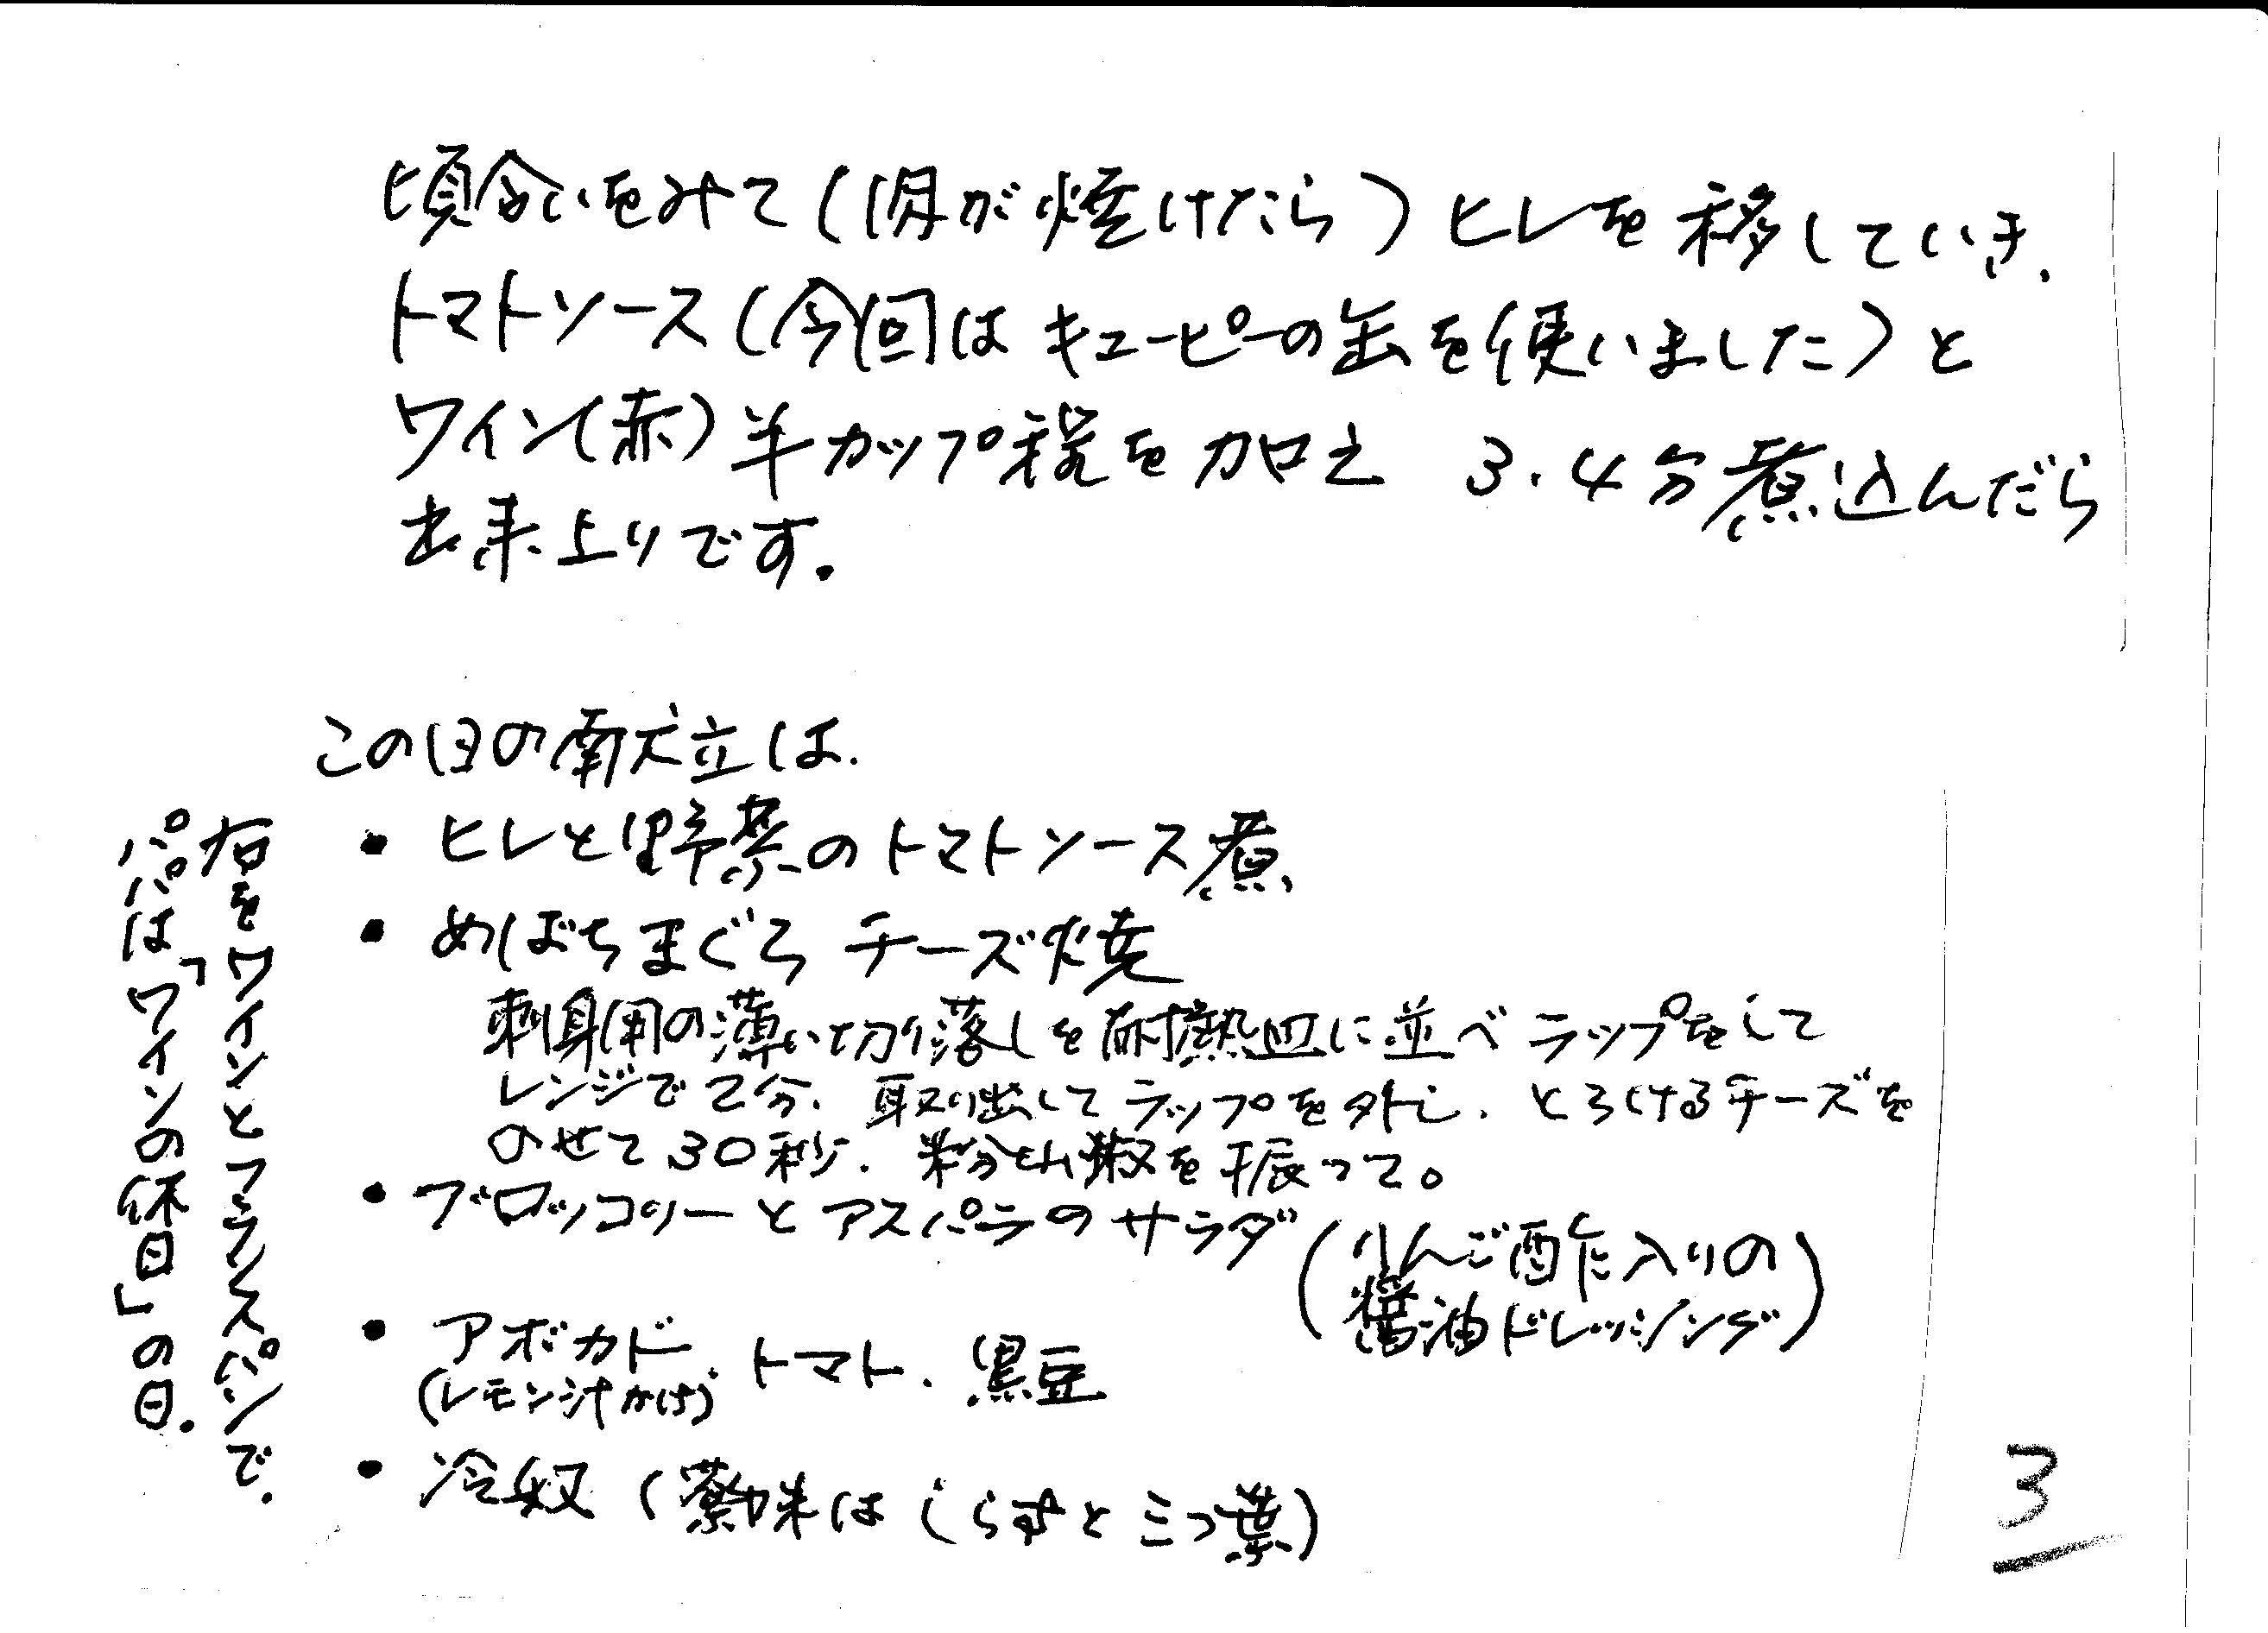 頃合いをみて(肉が焼けたら)ヒレを移していき、
トマトソース(今回はキューピーの缶を使いました)と
ワイン(赤)半カップ程を加え 3.4分煮込んだら
出来上りです.
この日の献立は.
・ヒレと野菜のトマトソース煮
・めばちまぐろ チーズ焼
刺身用の薄い切り落しを耐熱皿に並べラップをして
レンジで2分. 取り出してラップを外し. とろけるチーズを
のせて30秒. 粉山椒を振って。
・ブロッコリーとアスパラのサラダ(りんご酢入りの
醤油ドレッシング)
・アボカド、トマト、黒豆
(レモン汁かけ)
・冷奴(薬味はしらすと三つ葉)
右をワインとフランスパンで.
パパは「ワインの休日」の日.
3